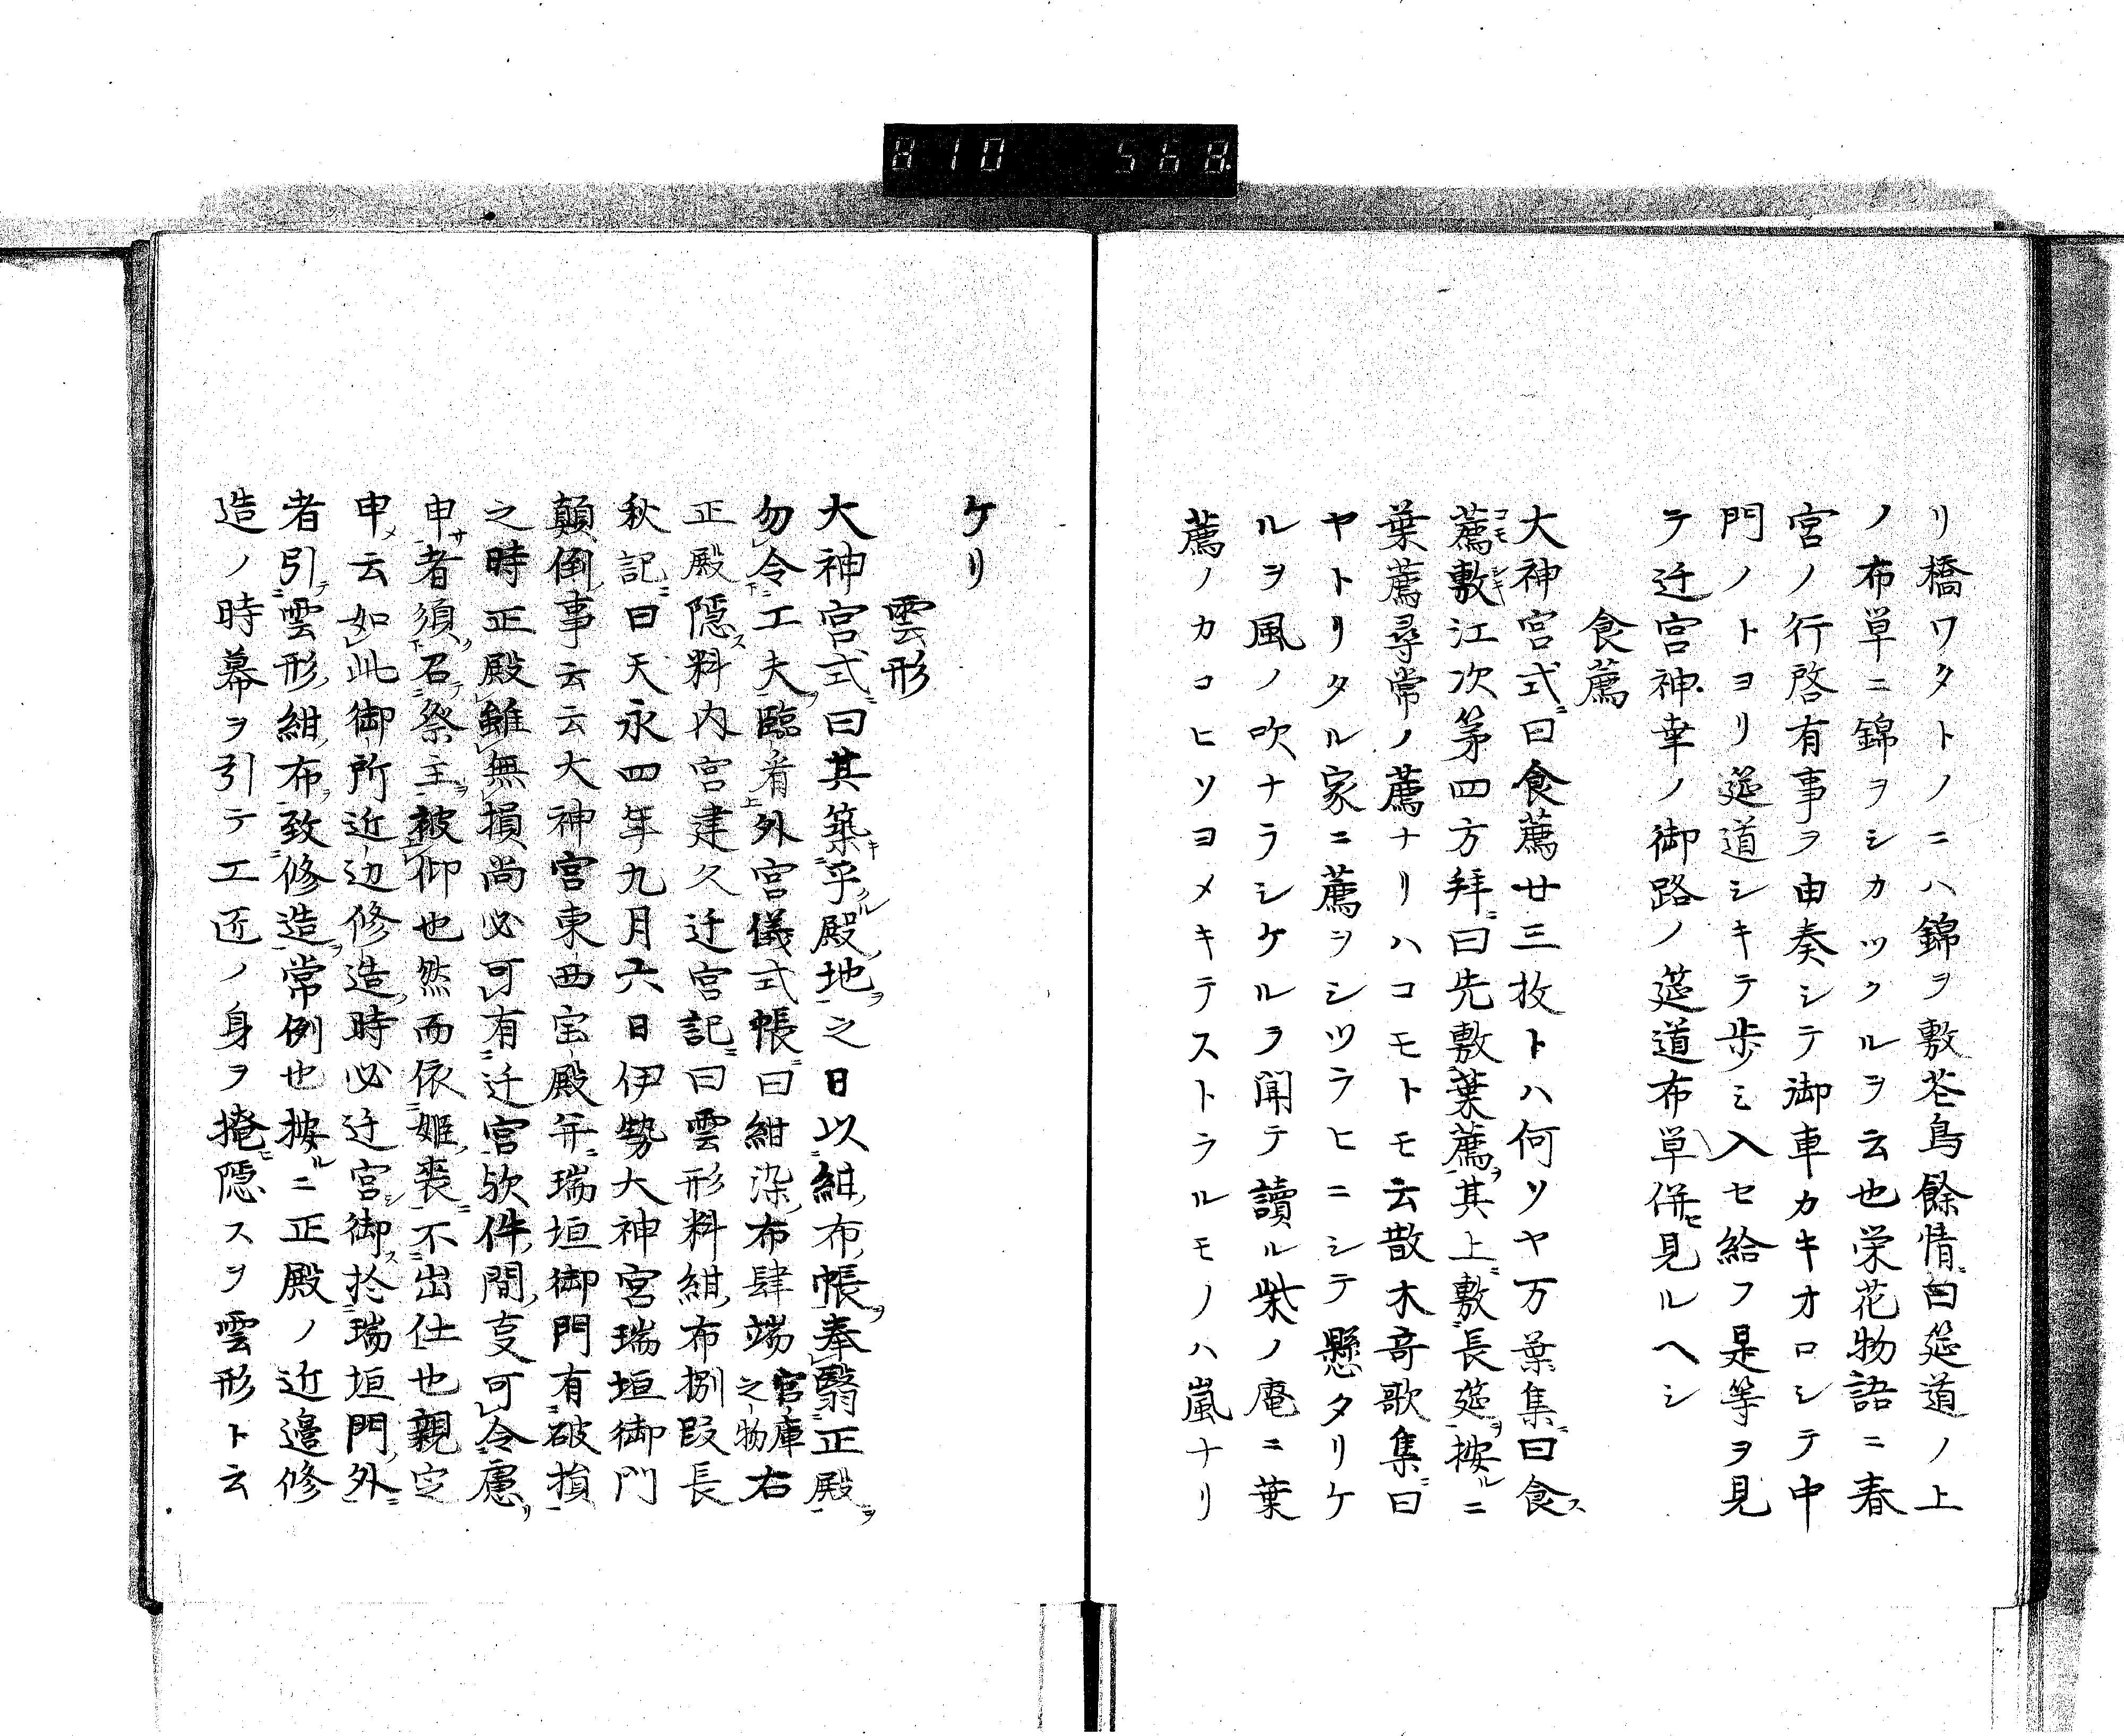 810 568
リ橋ワタトノニハ錦ヲ敷花鳥餘情曰筵道ノ上
ノ布単ニ錦ヲシカツクルヲ云也栄花物語ニ春
宮ノ行啓有事ヲ由奏シテ御車カキオロシテ中
門ノトヨリ筵道シキテ歩ミ入セ給フ是等ヲ見
テ迁宮神幸ノ御路ノ筵道布単併見ルヘシ
食薦
大神宮式曰食薦廿三枚トハ何ソヤ万葉集曰食
薦敷江次第四方拝曰先敷葉薦其上敷長筵按ニ
葉薦尋常ノ薦ナリハコモトモ云散木竒歌集曰
ヤトリタル家ニ薦ヲシツラヒニシテ懸タリケ
ルヲ風ノ吹ナラシケルヲ聞テ讀ル柴ノ庵ニ葉
薦ノカコヒソヨメキテストラルモノハ嵐ナリ
ケリ
雲形
大神宮式曰其築平殿地之日以紺布帳奉翳正殿
勿令工夫臨着外宮儀式帳曰紺染布肆端官庫之物右
正殿隠料内宮建久迁宮記曰雲形料紺布捌段長
秋記曰天永四年九月六日伊勢大神宮瑞垣御門
顛倒事云云大神宮東西宝殿并瑞垣御門有破損
之時正殿雖無損尚必可有迁宮欤件間叓可令慮
申者須召祭主被仰也然而依姫喪不出仕也親定
申云如此御所近辺修造時必迁宮御扵瑞垣門外
者引雲形紺布致修造常例也按ニ正殿ノ近邉修
造ノ時幕ヲ引テ工匠ノ身ヲ掩隠スヲ雲形ト云